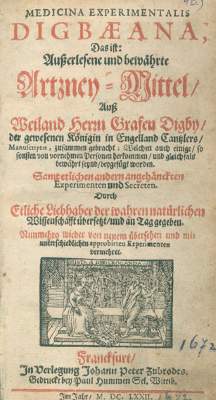 MEDICINA EXPERIMENTALIS
DIGBÆANA,
Das ist:
Außerlesene und bewährte
Artzney-Mittel/
Auß
Weiland Herrn Grafen Digby/
der gewesenen Königin in Engelland Cantzlers/
Manuscripten, zusammen gebracht; Welchen auch einige/ so
sonsten von vornehmen Personen herkommen/ und gleichfals
bewährt seynd/ beygefügt worden.
Samt etlichen andern angehänckten
Experimenten und Secreten.
Durch
Etliche Liebhaber der wahren natürlichen
Wissenschafft übersetzt/ und an Tag gegeben.
Nunmehro wieder von neuem übersehen und mit
unterschiedlichen approbirten Experimenten
vermehret.
1672
Franckfurt/
In Verlegung Johann Peter Zubrodts.
Gedruckt bey Paul Hummen Sel. Wittib.
Im Jahr/ M. DC. LXXII.